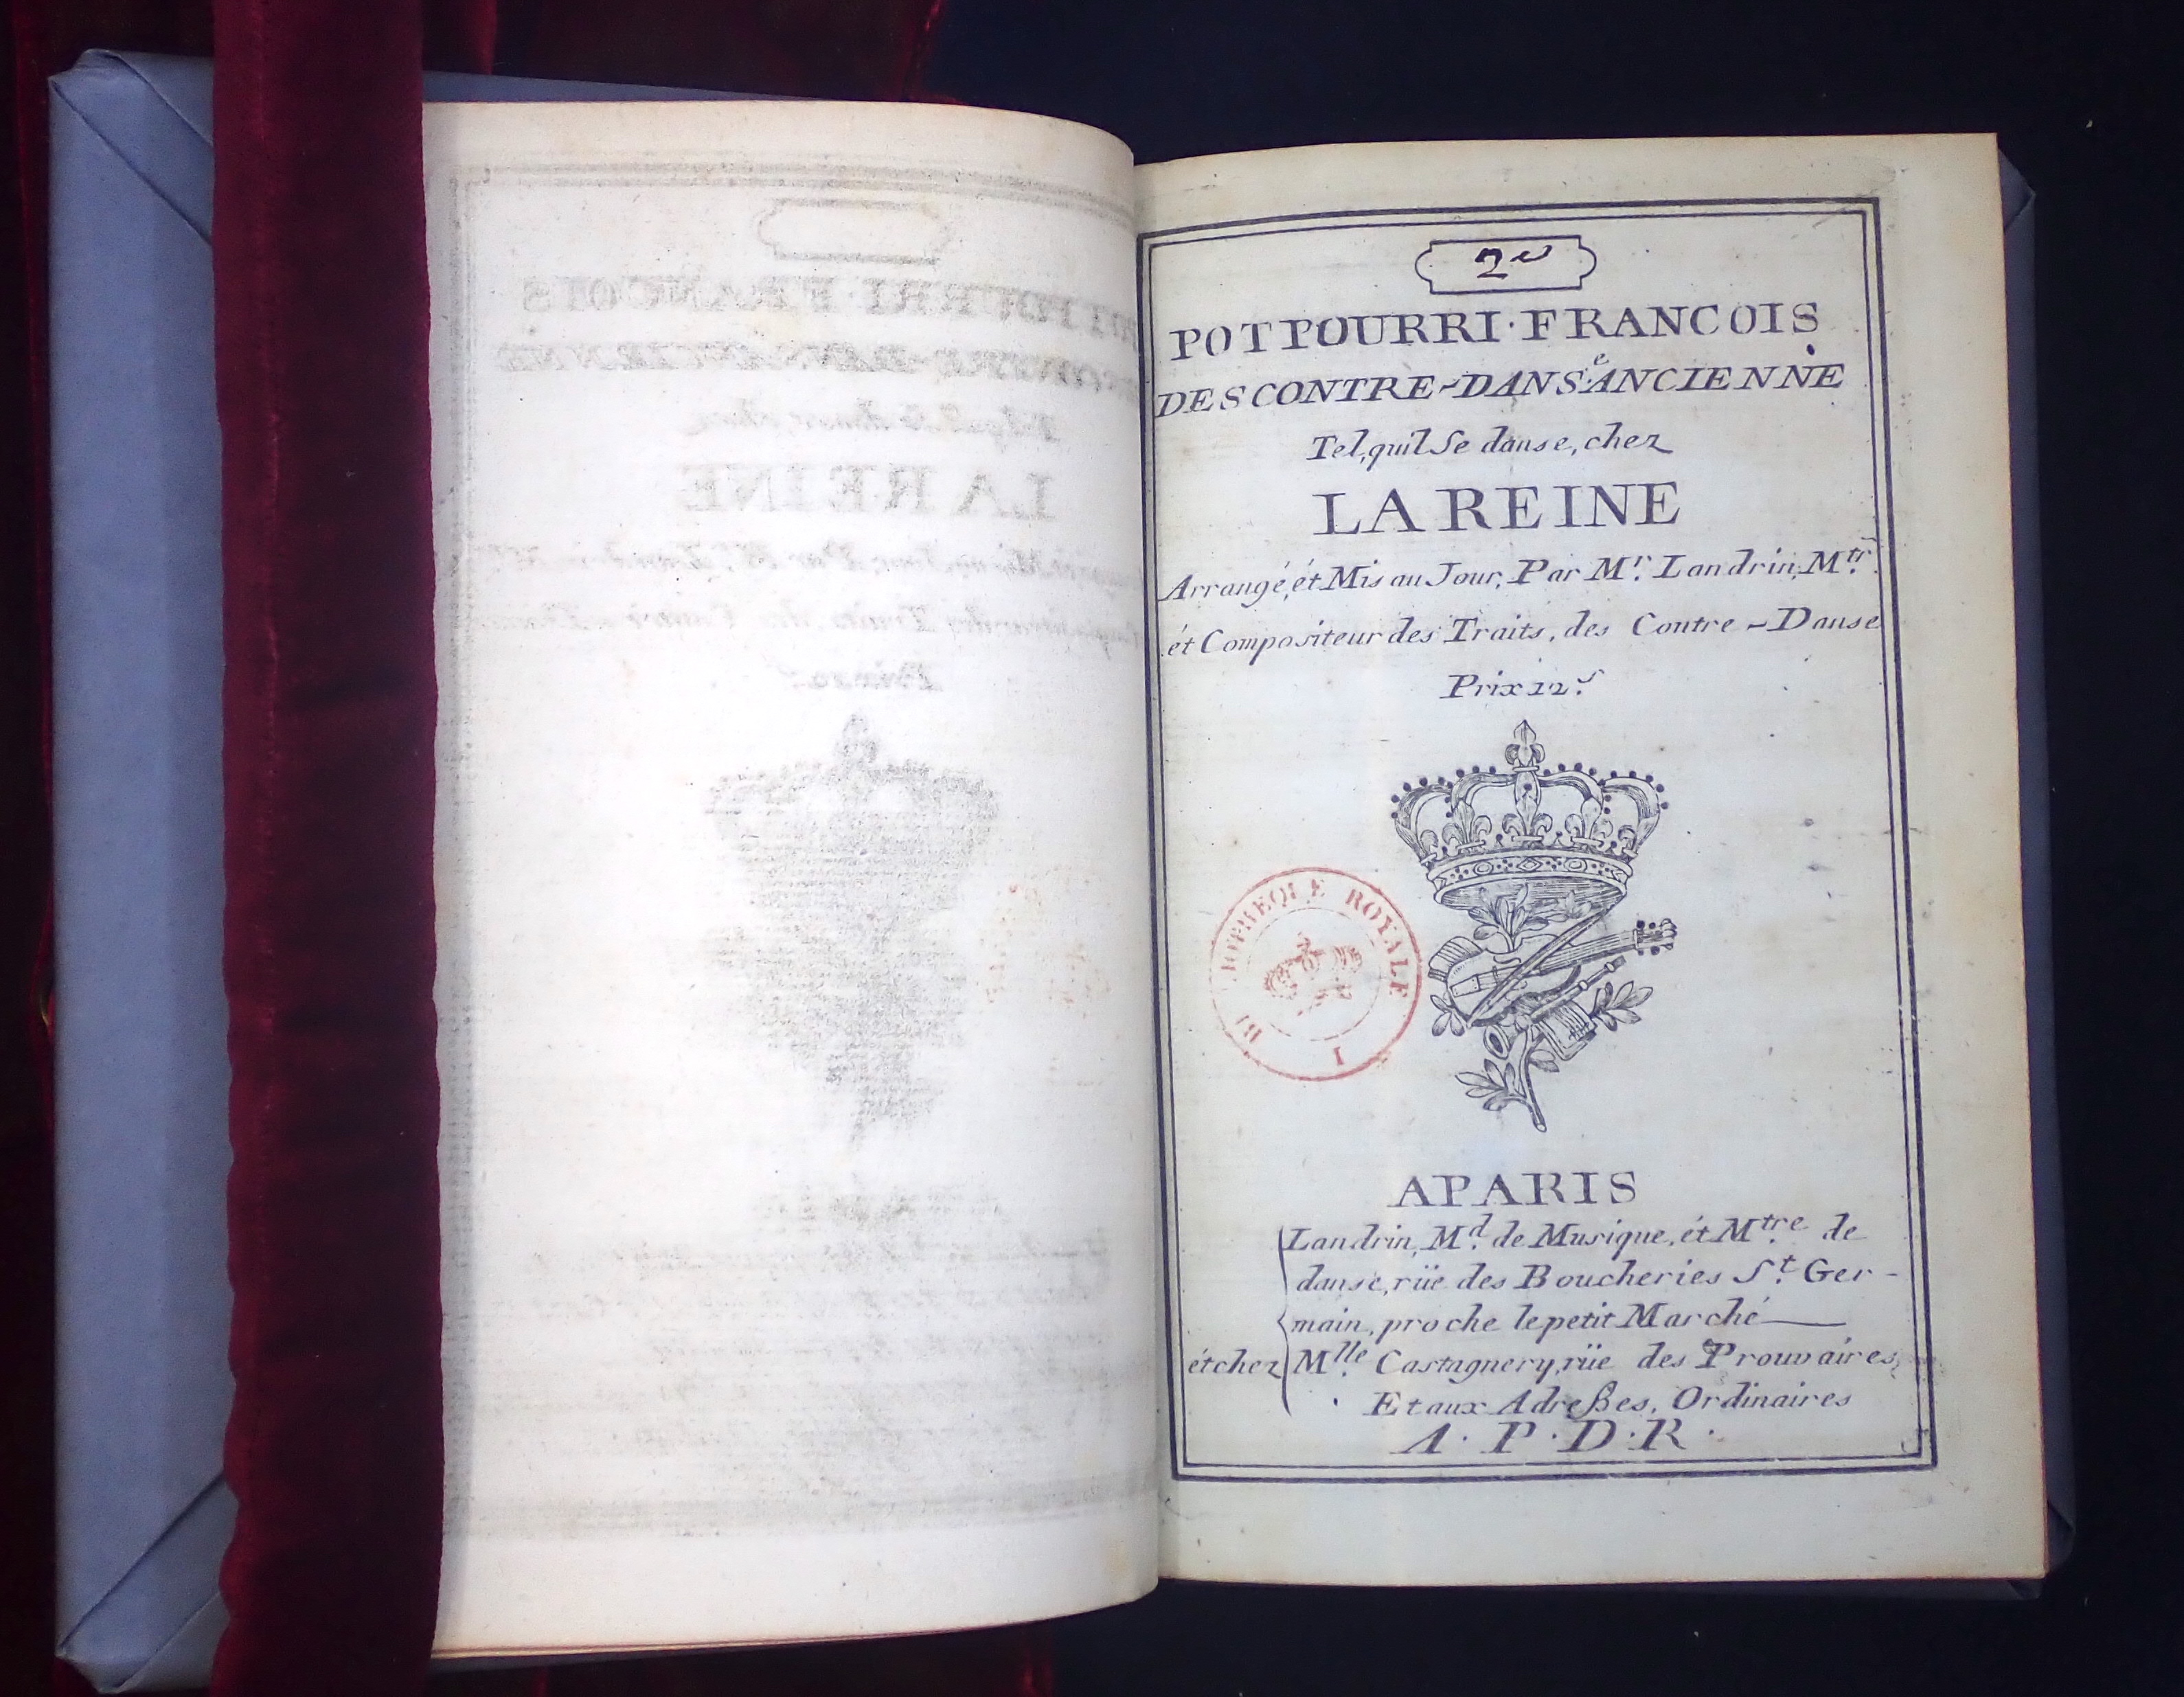 2e
POTPOURRI·FRANCOIS
DES CONTRE-DANSe ANCIENNE
Tel, quil Se danse, chez
LA REINE
Arrangé, ét Mis au Jour, Par Mr. Landrin, Mtr.
ét Compositeur des Traits, des Contre-Danse
Prix 12 s
BIBLIOTHEQUE ROYALE
I
A PARIS
Landrin, Md. de Musique, ét Mtre. de
danse, rüe des Boucheries St. Ger-
main, proche le petit Marché
ét chez Mlle. Castagnery, rüe des Prouvaires,
Et aux Adreßes, Ordinaires
A·P·D·R·